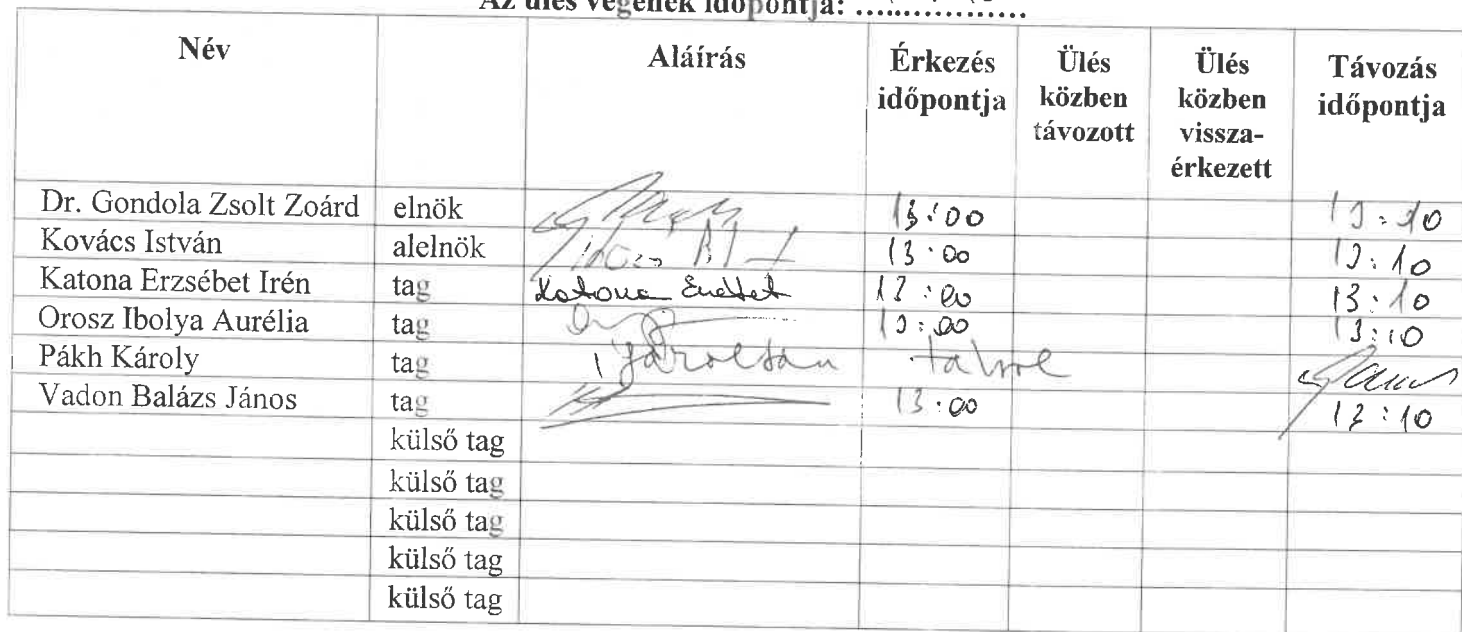 Az ülés végének időpontja: ..................
Név Aláírás Érkezés időpontja Ülés közben távozott Ülés közben vissza-érkezett Távozás időpontja
Dr. Gondola Zsolt Zoárd elnök 13:00 13:10
Kovács István alelnök 13:00 13:10
Katona Erzsébet Irén tag Katona Erzsébet 13:00 13:10
Orosz Ibolya Aurélia tag 13:00 13:10
Pákh Károly tag igazoltan távol
Vadon Balázs János tag 13:00 13:10
külső tag
külső tag
külső tag
külső tag
külső tag